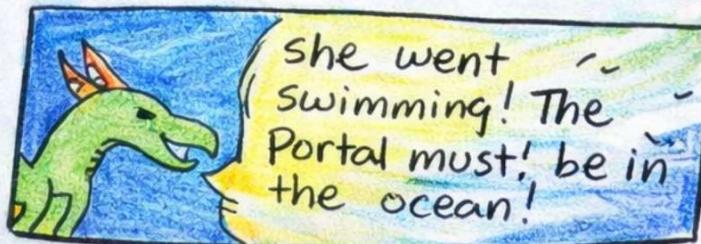 She went
swimming! The
Portal must! be in
the ocean!